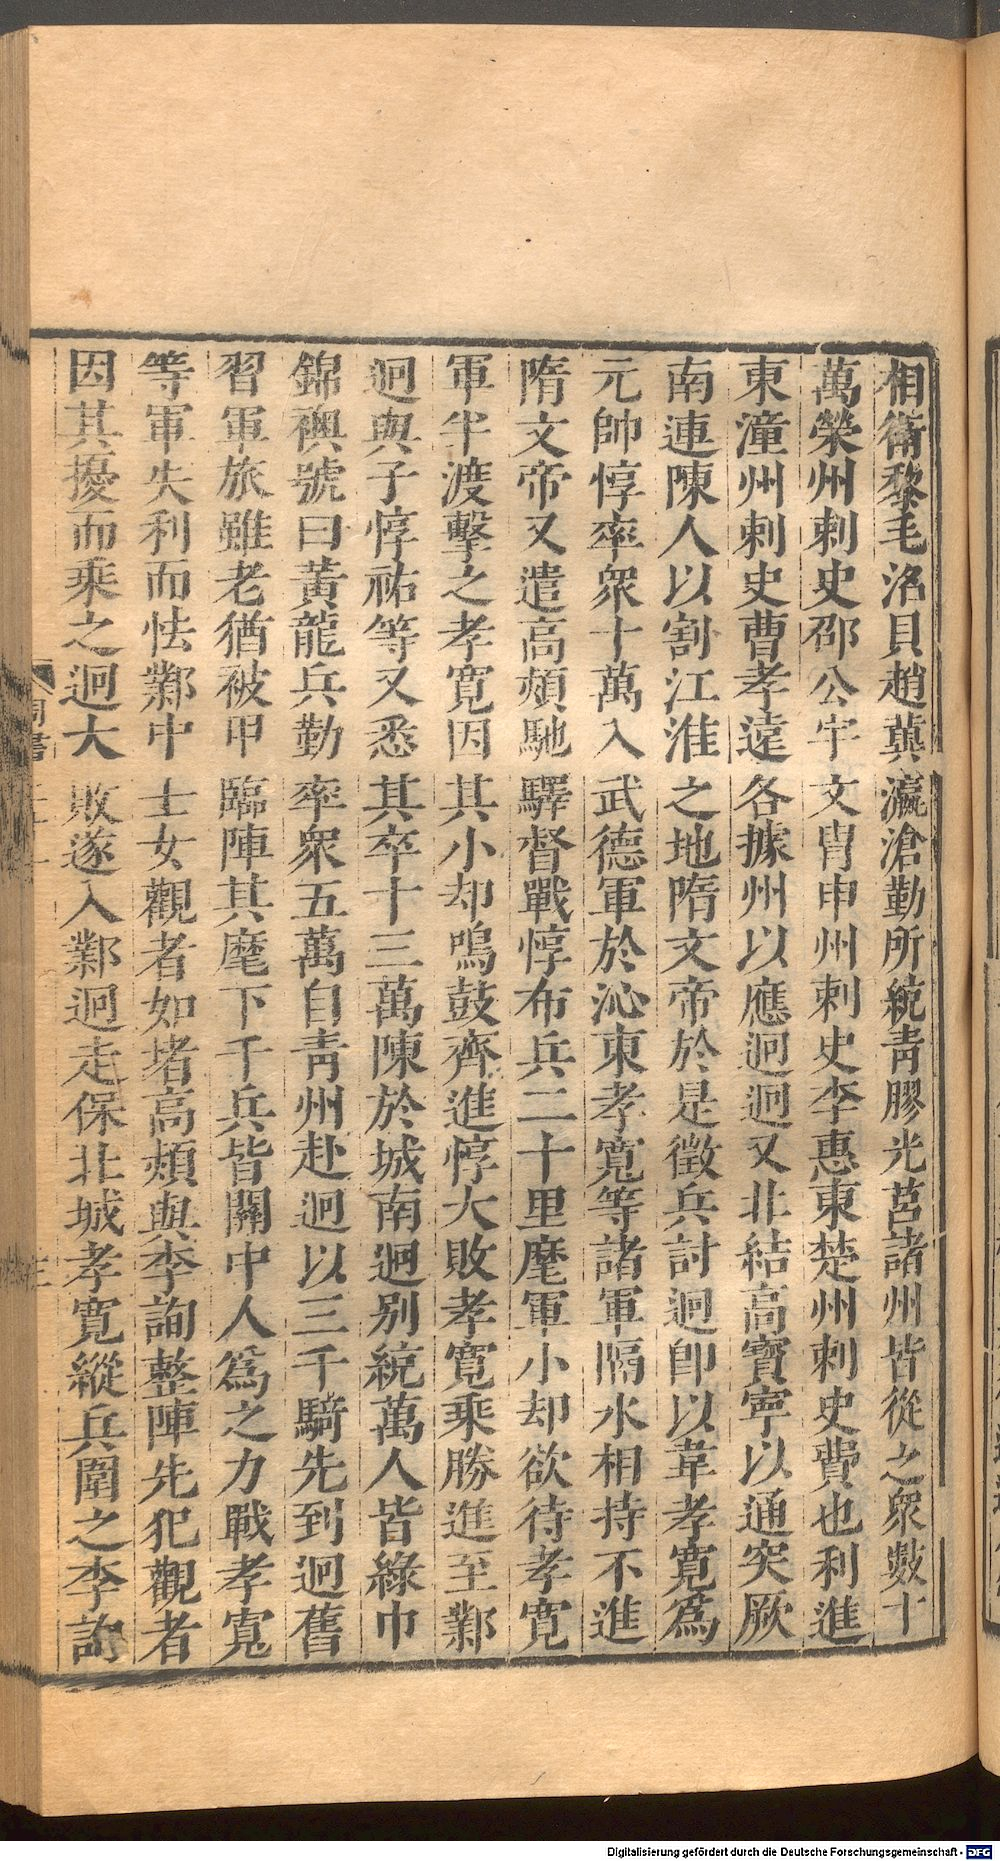 相衛黎毛洺貝趙冀瀛滄勤所統青膠光莒諸州皆從之衆數十
萬滎州刺史邵公宇文冑申州刺史李惠東楚州刺史費也利進
東潼州刺史曹孝逺各據州以應迥迥又北結高寶寧以通突厥
南連陳人以割江淮之地隋文帝於是徵兵討迥卽以韋孝寬爲
元帥惇率衆十萬入武德軍於沁東孝寬等諸軍隔水相持不進
隋文帝又遣高熲馳驛督戰惇布兵二十里麾軍小却欲待孝寬
軍半渡擊之孝寬因其小却鳴鼓齊進惇大敗孝寬乘勝進至鄴
迥與子惇祐等又悉其卒十三萬陳於城南迥别統萬人皆綠巾
錦襖號曰黃龍兵勤率衆五萬自青州赴迥以三千騎先到迥舊
習軍旅雖老猶被甲臨陣其麾下千兵皆關中人爲之力戰孝寬
等軍失利而怯鄴中士女觀者如堵高熲與李詢整陣先犯觀者
因其擾而乘之迥大敗遂入鄴迥走保北城孝寬縱兵圍之李詢
Digitalisierung gefördert durch die Deutsche Forschungsgemeinschaft - DFG